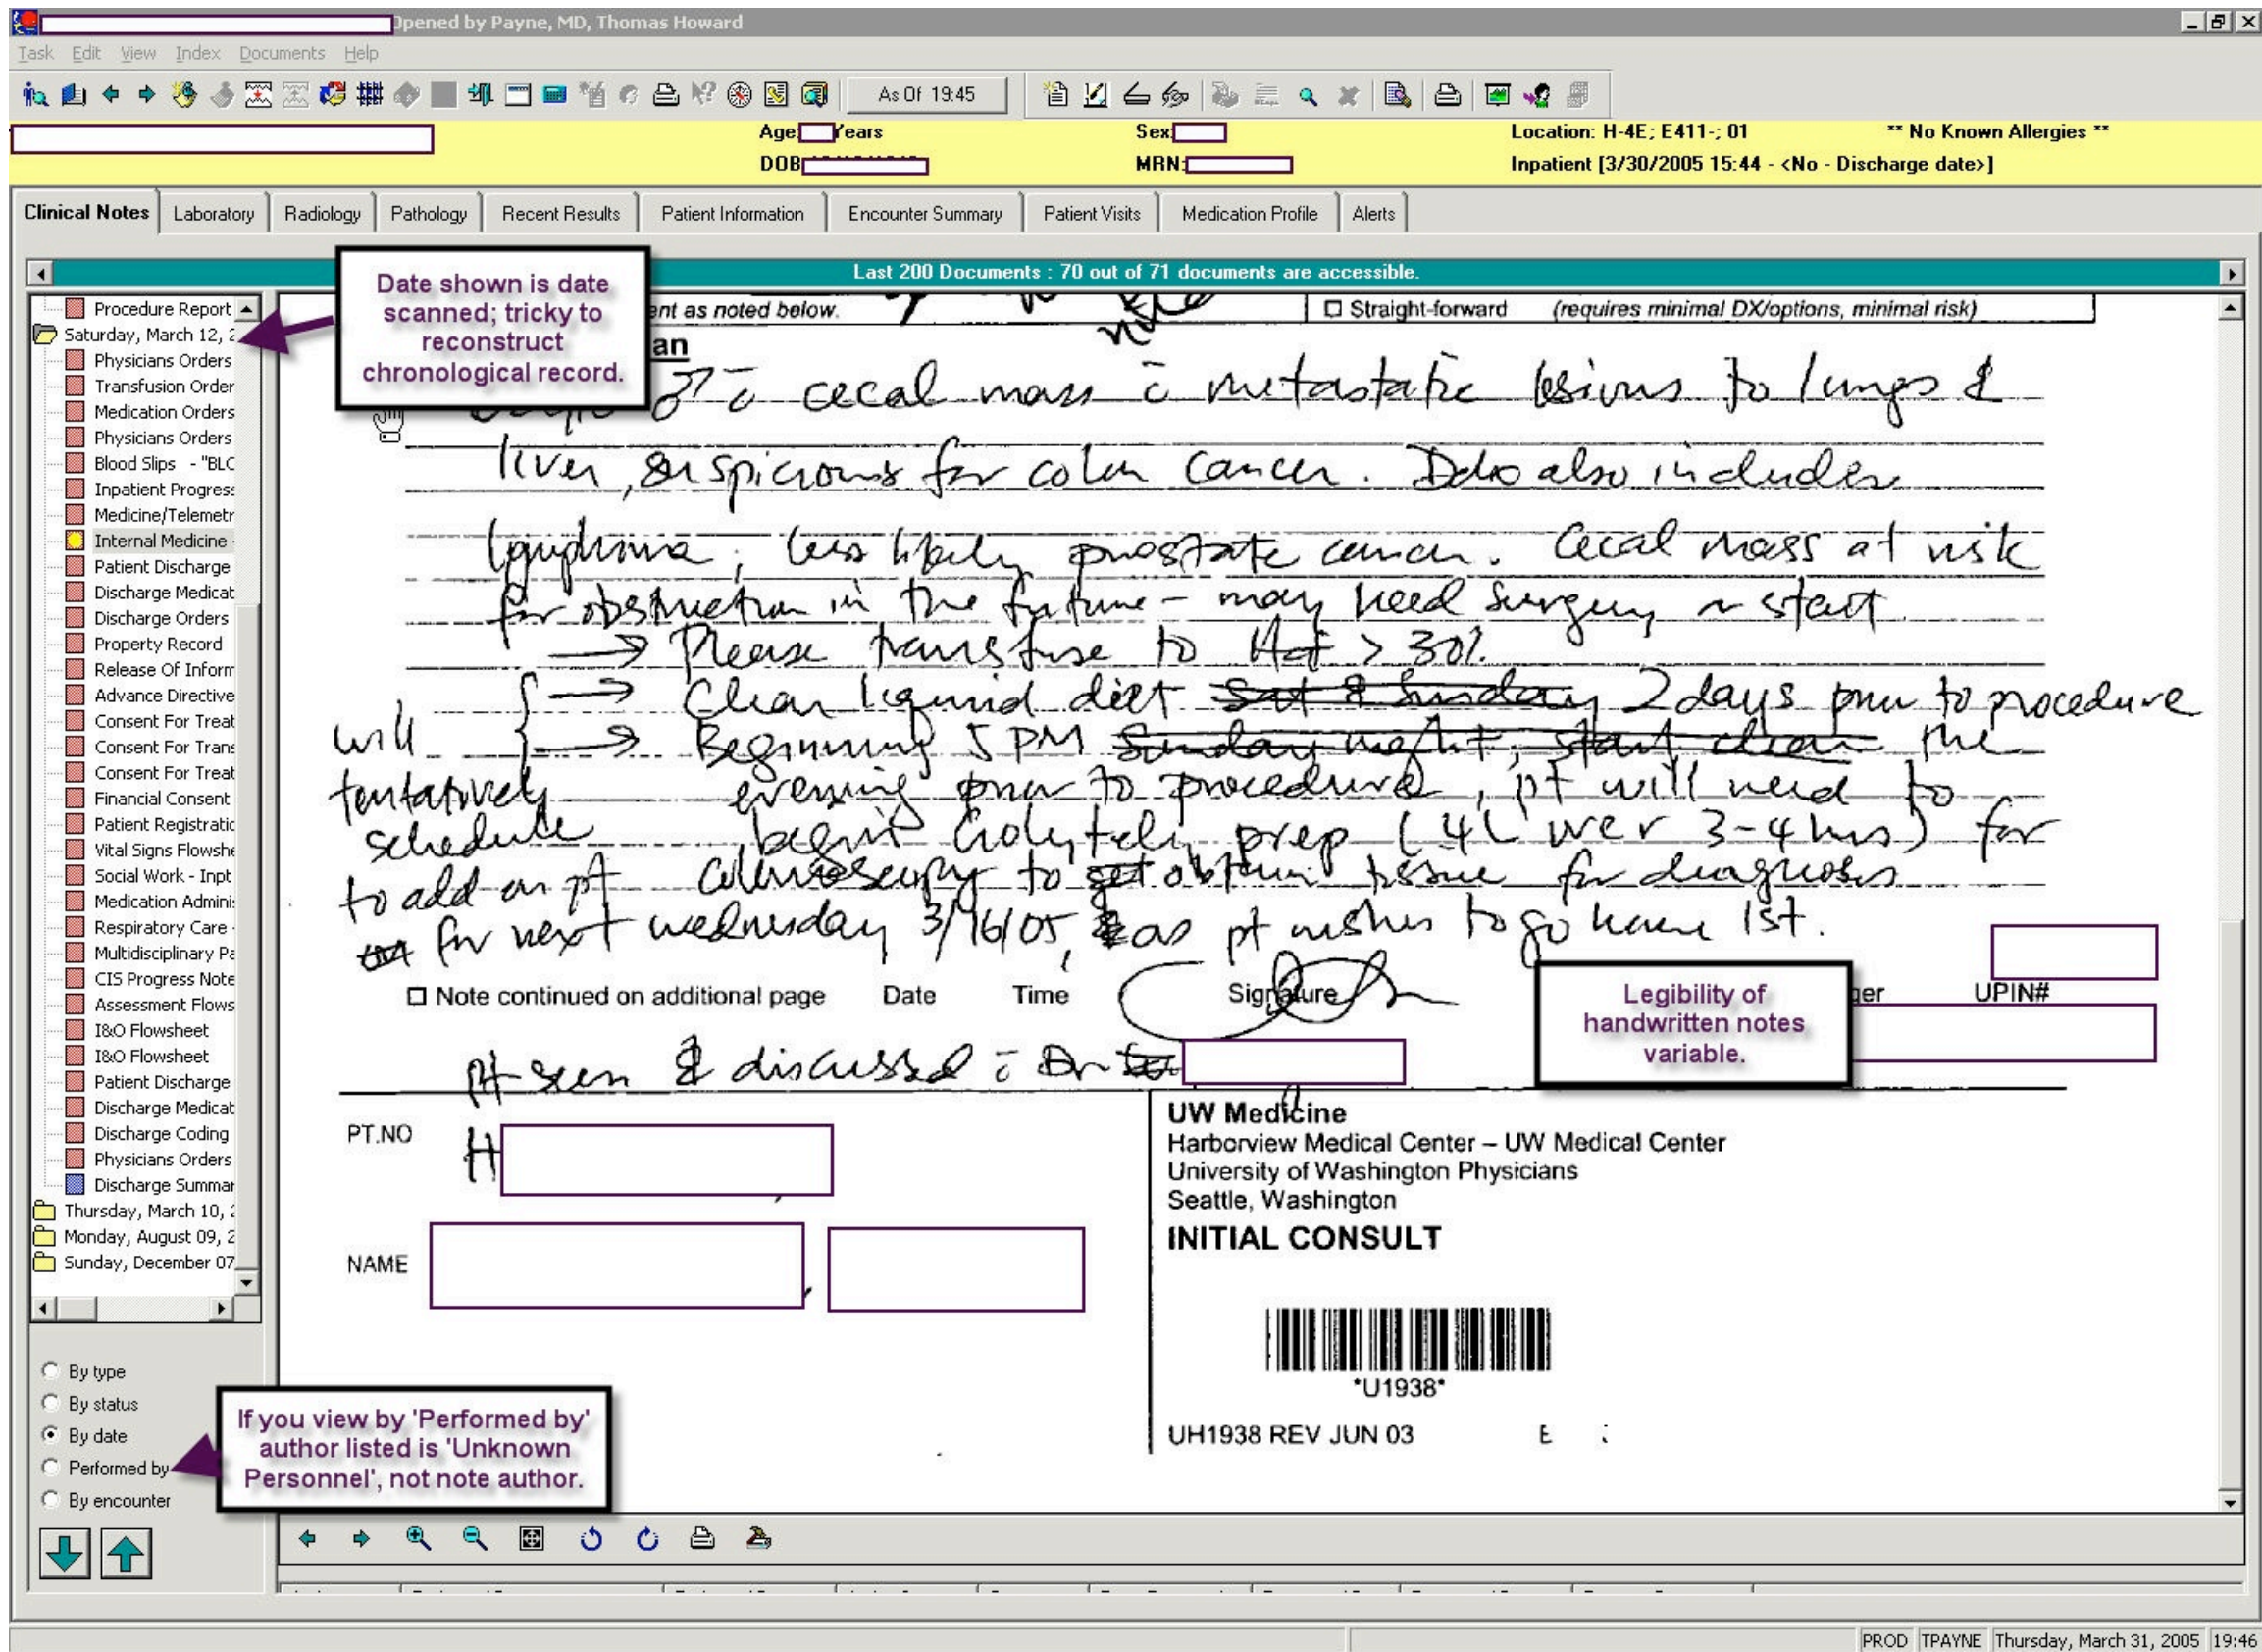 Opened by Payne, MD, Thomas Howard
Task Edit View Index Documents Help
As Of 19:45
Age: Years Sex: Location: H-4E; E411-; 01 ** No Known Allergies **
DOB MRN: Inpatient [3/30/2005 15:44 - <No - Discharge date>]
Clinical Notes Laboratory Radiology Pathology Recent Results Patient Information Encounter Summary Patient Visits Medication Profile Alerts
Last 200 Documents : 70 out of 71 documents are accessible.
Procedure Report
Saturday, March 12, 2
Physicians Orders
Transfusion Order
Medication Orders
Physicians Orders
Blood Slips - "BLC
Inpatient Progress
Medicine/Telemetr
Internal Medicine -
Patient Discharge
Discharge Medicat
Discharge Orders
Property Record
Release Of Inform
Advance Directive
Consent For Treat
Consent For Trans
Consent For Treat
Financial Consent
Patient Registratic
Vital Signs Flowshe
Social Work - Inpt
Medication Adminis
Respiratory Care -
Multidisciplinary Pa
CIS Progress Note
Assessment Flows
I&O Flowsheet
I&O Flowsheet
Patient Discharge
Discharge Medicat
Discharge Coding
Physicians Orders
Discharge Summar
Thursday, March 10, 2
Monday, August 09, 2
Sunday, December 07
By type
By status
By date
Performed by
By encounter
Date shown is date
scanned; tricky to
reconstruct
chronological record.
ent as noted below. Straight-forward (requires minimal DX/options, minimal risk)
an
c̄ cecal mass c̄ metastatic lesions to lungs &
liver, suspicious for colon cancer. Ddx also includes
lymphoma, less likely prostate cancer. Cecal mass at risk
for obstruction in the future - may need surgery stent
→ Please transfuse to Hct > 30%
→ Clear liquid diet Sat & Sunday 2 days prior to procedure
→ Beginning 5 PM Sunday night, start clear the
evening prior to procedure, pt will need to
begin Golytely prep (4L over 3-4 hrs) for
colonoscopy to get obtain tissue for diagnosis
will
tentatively
schedule
to add on pt
for next wednesday 3/16/05, as pt wishes to go home 1st.
Note continued on additional page Date Time Signature ger UPIN#
Legibility of
handwritten notes
variable.
pt seen & discussed c̄ Dr
PT.NO H
NAME
UW Medicine
Harborview Medical Center – UW Medical Center
University of Washington Physicians
Seattle, Washington
INITIAL CONSULT
*U1938*
UH1938 REV JUN 03 E
If you view by 'Performed by'
author listed is 'Unknown
Personnel', not note author.
PROD TPAYNE Thursday, March 31, 2005 19:46